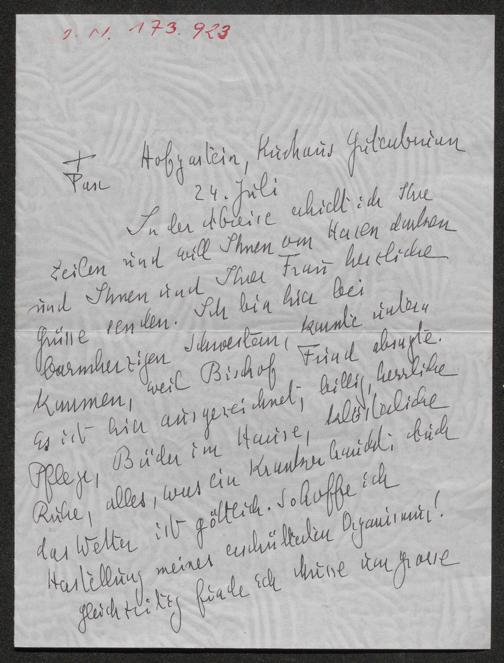 I. N. 173.923
Hofgastein, Kurhaus Gutenbrunn
+
Pax
24. Juli
In der Abreise erhielt ich Ihre
Zeilen und will Ihnen von Herzen danken
und Ihnen und Ihrer Frau herzliche
Grüsse senden. Ich bin hier bei
barmherzigen Schwestern, konnte unter
kommen, weil Bischof Frind absagte.
Es ist hier ausgezeichnet; billig, herrliche
Pflege, Bäder im Hause, klösterliche
Ruhe, alles, was ein Kranker braucht; auch
das Wetter ist göttlich. So hoffe ich
Herstellung meines erschütterten Organismus!
Gleichzeitig finde ich Musse um grosse